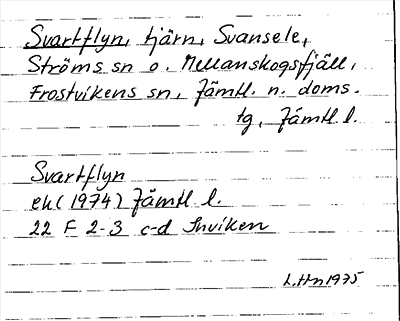 Svartflyn, tjärn, Svansele,
Ströms sn o. Mellanskogsfjäll,
Frostvikens sn, Jämtl. n. doms.
tg, Jämtl l.
Svartflyn
ek (1974) Jämtl l.
22 F 2-3 c-d Inviken
L.Hn 1975